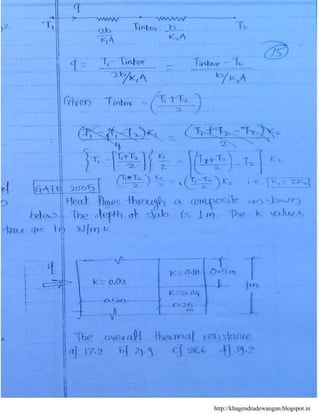 q
T₁ Tinter T₂
2b b
K₁A K₂A
15
q = T₁ - Tinter / 2b/K₁A = Tinter - T₂ / b/K₂A
Given Tinter = (T₁+T₂ / 2)
{T₁ - [T₁+T₂ / 2]} K₁/2 = [(T₁+T₂ / 2) - T₂] K₂
GATE 2005
K₂ i.e K₁ = 2K₂
Heat flows through a composite as shown
below. The depth of slab is 1m. The k values
are in W/mk
q
K=0.10 0.5m
K=0.02 1m
K=0.04
0.5m 0.25
m
The overall thermal resistance
a] 17.2 b] 21.9 c] 28.6 d] 39.2
http://khagendradewangan.blogspot.in